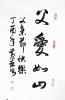 父爱如山
父亲节快乐
丁酉年